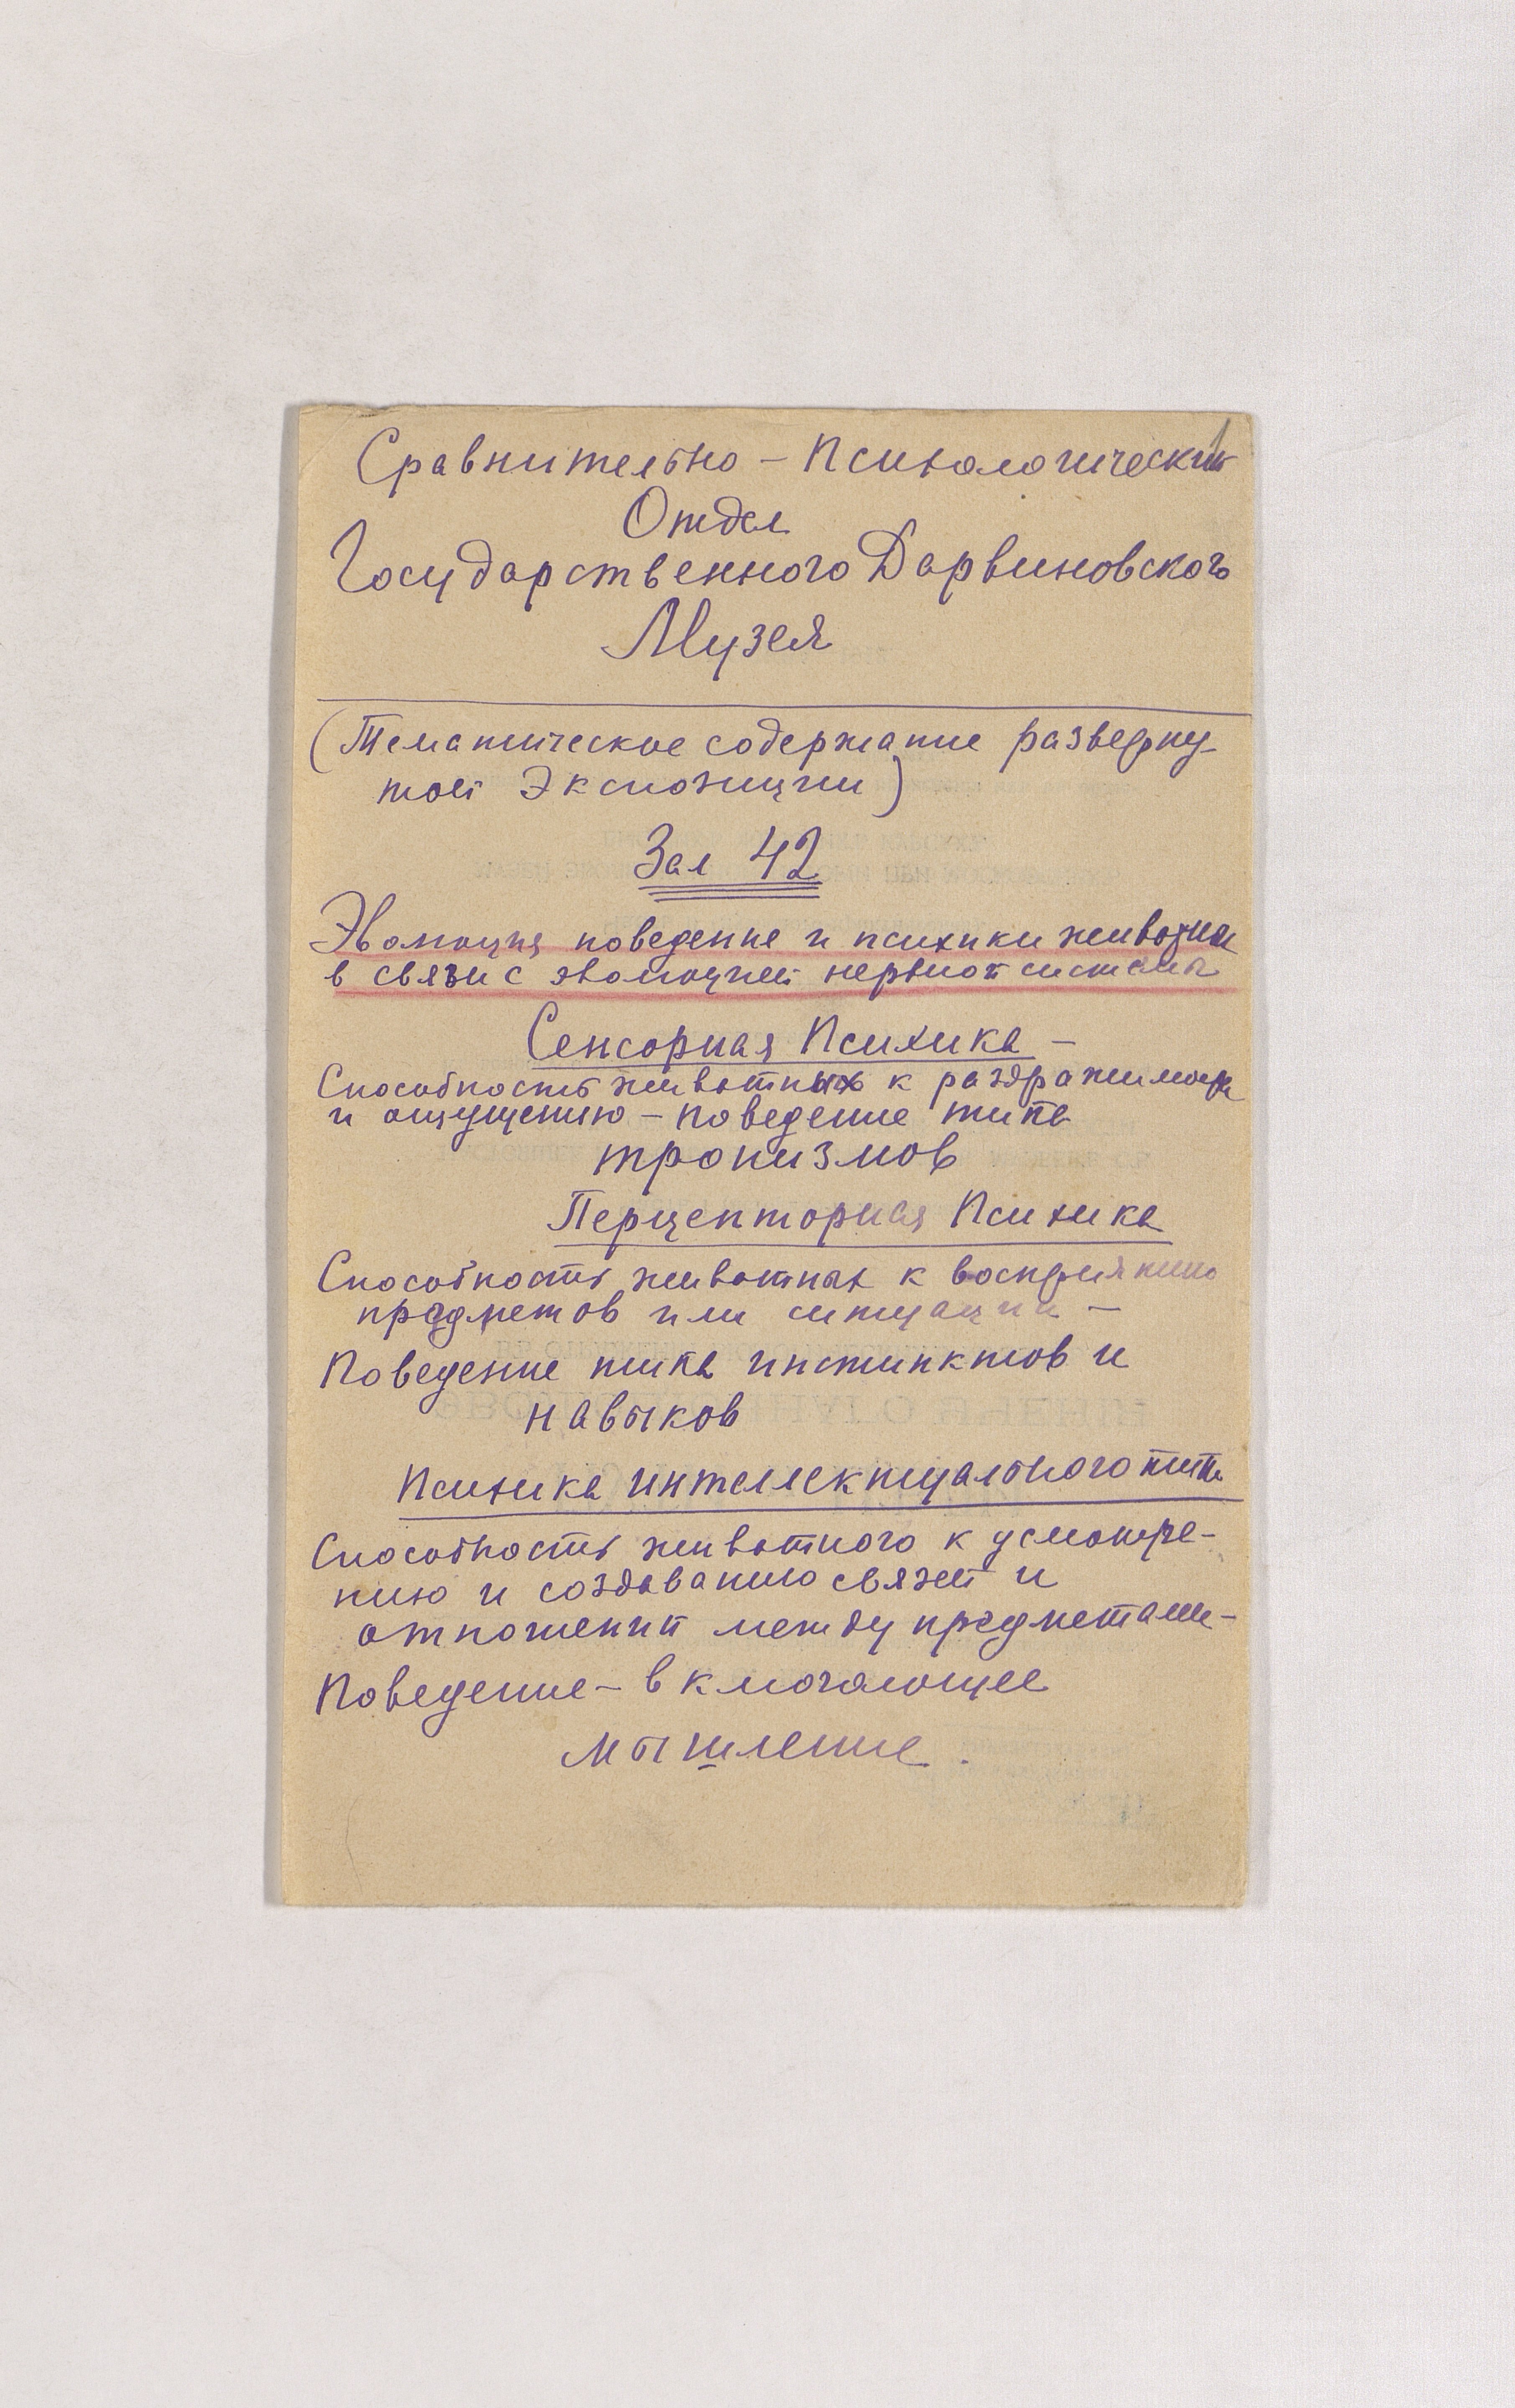 Сравнительно – Психологический
Отдел
Государственного Дарвиновского
Музея
(Тематическое содержание разверну-
той Экспозиции)
Зал 42
Эволюция поведения и психики животных
в связи с эволюцией нервной системы
Сенсорная Психика –
Способность животных к раздражимости
и ощущению – поведение типа
тропизмов
Перцепторная Психика
Способность животных к восприятию
предметов или ситуации –
Поведение типа инстинктов и
навыков
Психика интеллектуального типа
Способность животного к усмотре-
нию и создаванию связей и
отношений между предметами –
Поведение – включающее
мышление.